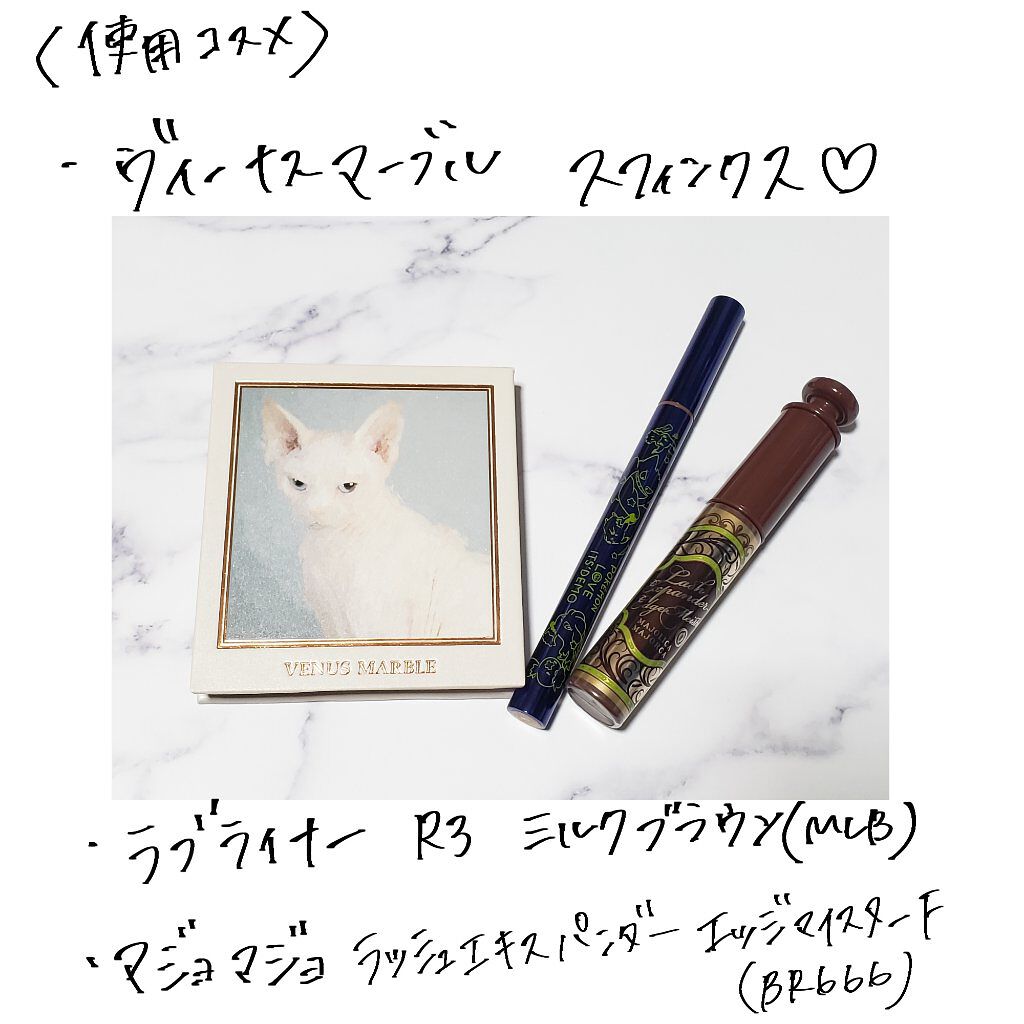 〈使用コスメ〉
・ヴィーナスマーブル スフィンクス♡
VENUS MARBLE
POKÉMON
LOVE
ITS'DEMO
Lash
Expander
Edge Meister
MAJOLICA
MAJORCA
・ラブライナー R3 ミルクブラウン(MLB)
・マジョマジョ ラッシュエキスパンダー エッジマイスターF
(BR666)